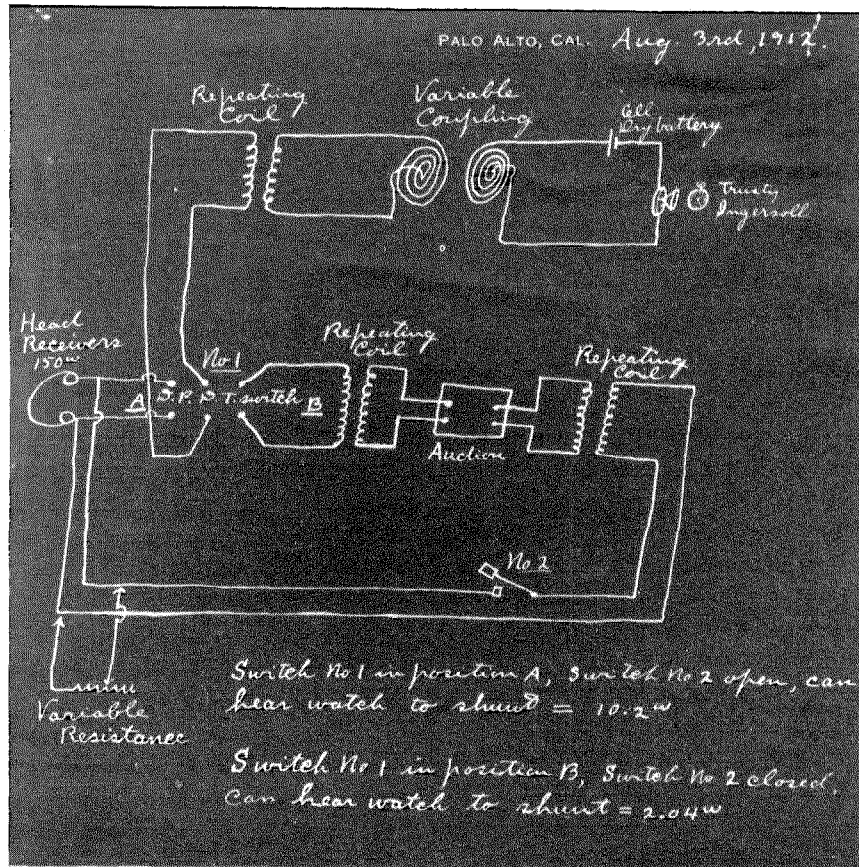 PALO ALTO, CAL. Aug. 3rd, 1912.
Repeating
Coil
Variable
Coupling
Cell
Dry battery
Trusty
Ingersoll
Head
Receivers
150ω
No 1
A D. P. D. T. switch B
Repeating
Coil
Repeating
Coil
Audion
No 2
Variable
Resistance
Switch No 1 in position A, Switch No 2 open, can
hear watch to shunt = 10.2ω
Switch No 1 in position B, Switch No 2 closed,
can hear watch to shunt = 2.04ω